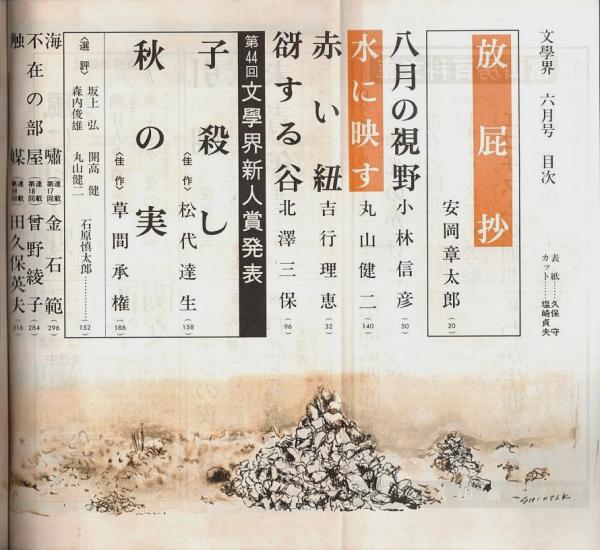 文學界 六月号 目次
表紙……久保 守
カット……塩崎貞夫
放屁抄
安岡章太郎 (20)
八月の視野 小林信彦 (50)
水に映す 丸山健二 (140)
赤い紐 吉行理恵 (32)
谺する谷 北澤三保 (96)
第44回文學界新人賞発表
子殺し 〈佳作〉 松代達生 (158)
秋の実 〈佳作〉 草間承権 (186)
〈選評〉 坂上 弘 開高 健 石原慎太郎…………(152)
森内俊雄 丸山健二
海嘯 〈連載第17回〉 金石範 (296)
不在の部屋 〈連載第18回〉 曾野綾子 (284)
触媒 田久保英夫
SHIOZAK